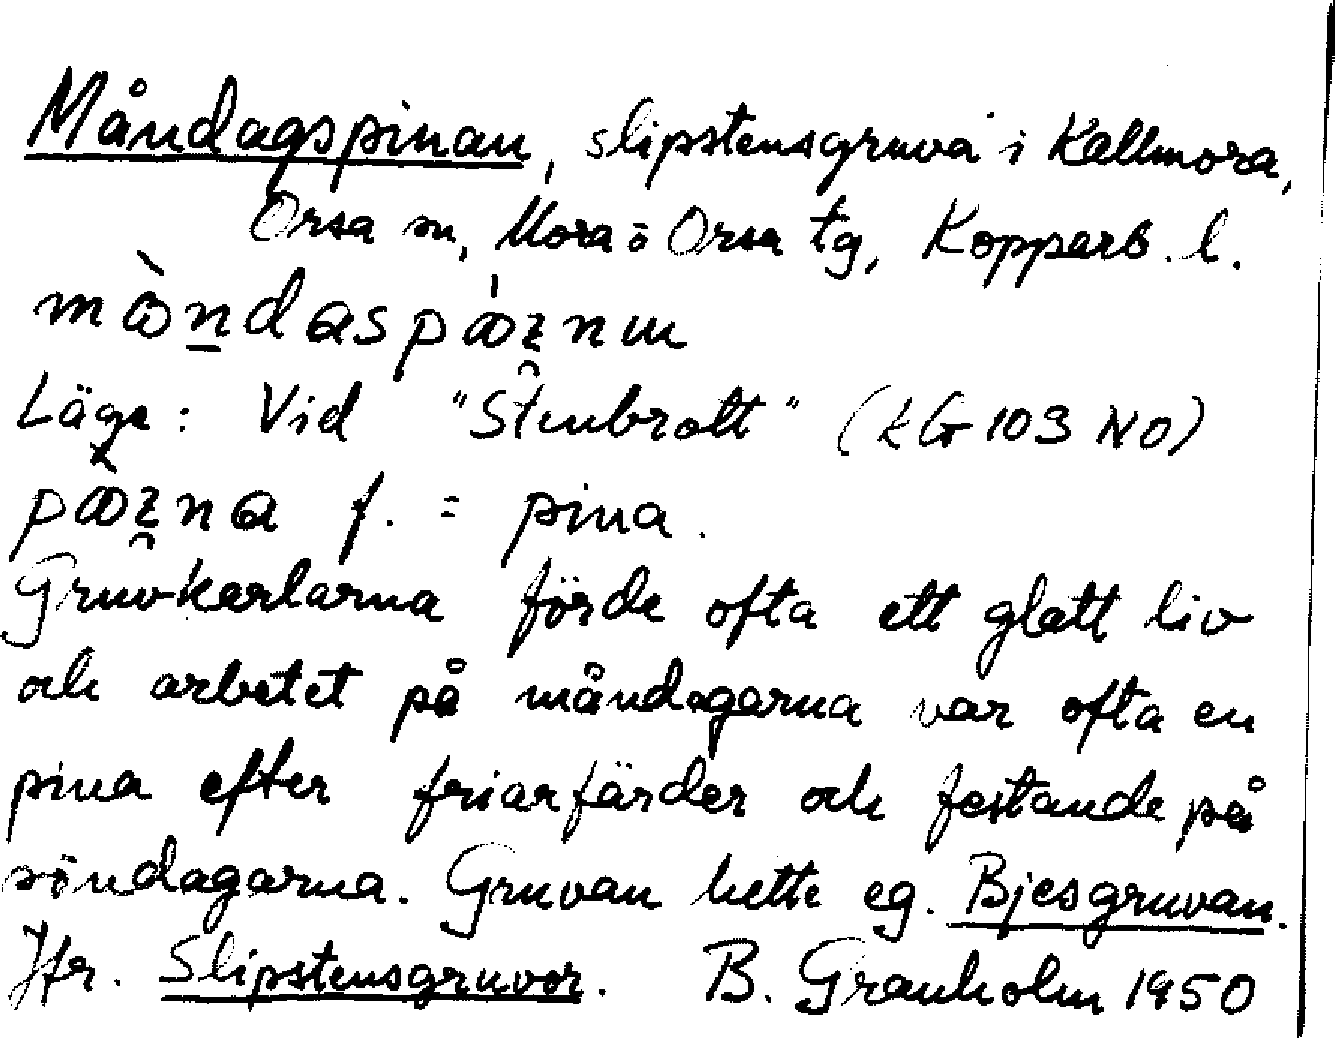 Måndagspinan, slipstensgruva i Kallmora,
Orsa sn, Mora o Orsa tg, Kopparb. l.
Läge: Vid "Stenbrott" (EG 103 NO)
f. = pina.
Gruvkarlarna förde ofta ett glatt liv
och arbetet på måndagarna var ofta en
pina efter friarfärder och festande på
söndagarna. Gruvan hette eg. Bjesgruvan.
Jfr. Slipstensgruvor. B. Granholm 1950